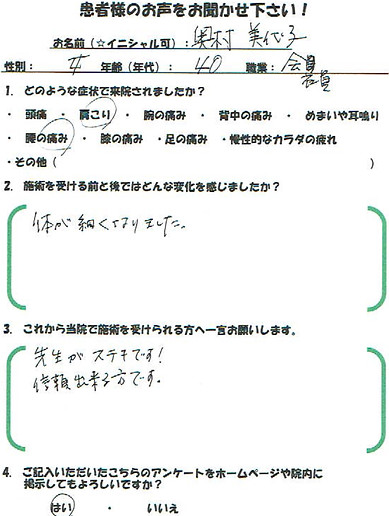 患者様のお声をお聞かせ下さい！
お名前（☆イニシャル可）：奥村 美代子
性別： 女 年齢（年代）： 40 職業： 会社員
1. どのような症状で来院されましたか？
・ 頭痛 ・ 肩こり ・ 腕の痛み ・ 背中の痛み ・ めまいや耳鳴り
・ 腰の痛み ・ 膝の痛み ・ 足の痛み ・慢性的なカラダの疲れ
・その他（ ）
2. 施術を受ける前と後ではどんな変化を感じましたか？
体が細くなりました。
3. これから当院で施術を受けられる方へ一言お願いします。
先生がステキです！
信頼出来る方です。
4. ご記入いただいたこちらのアンケートをホームページや院内に
掲示してもよろしいですか？
はい ・ いいえ